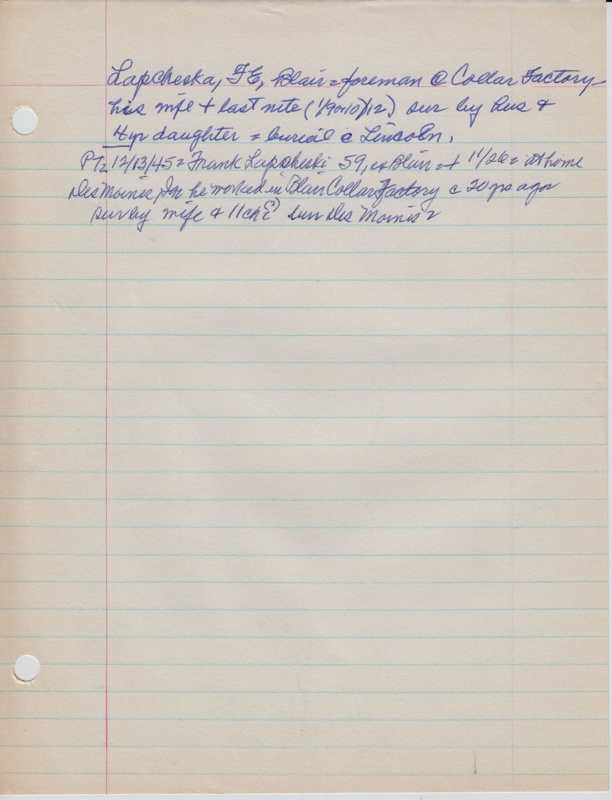 Lapcheska, F E, Blair = foreman @ Collar Factory
his wife + last nite (1/9or10/12) sur by hus &
4yr daughter = burial @ Lincoln.
PT = 12/13/45 = Frank Lapcheski 59, ex Blair + 11/26 = at home
Des Moines, he worked in Blair Collar Factory c 20 yrs ago
sur by wife & 11 ch (?) bur Des Moines